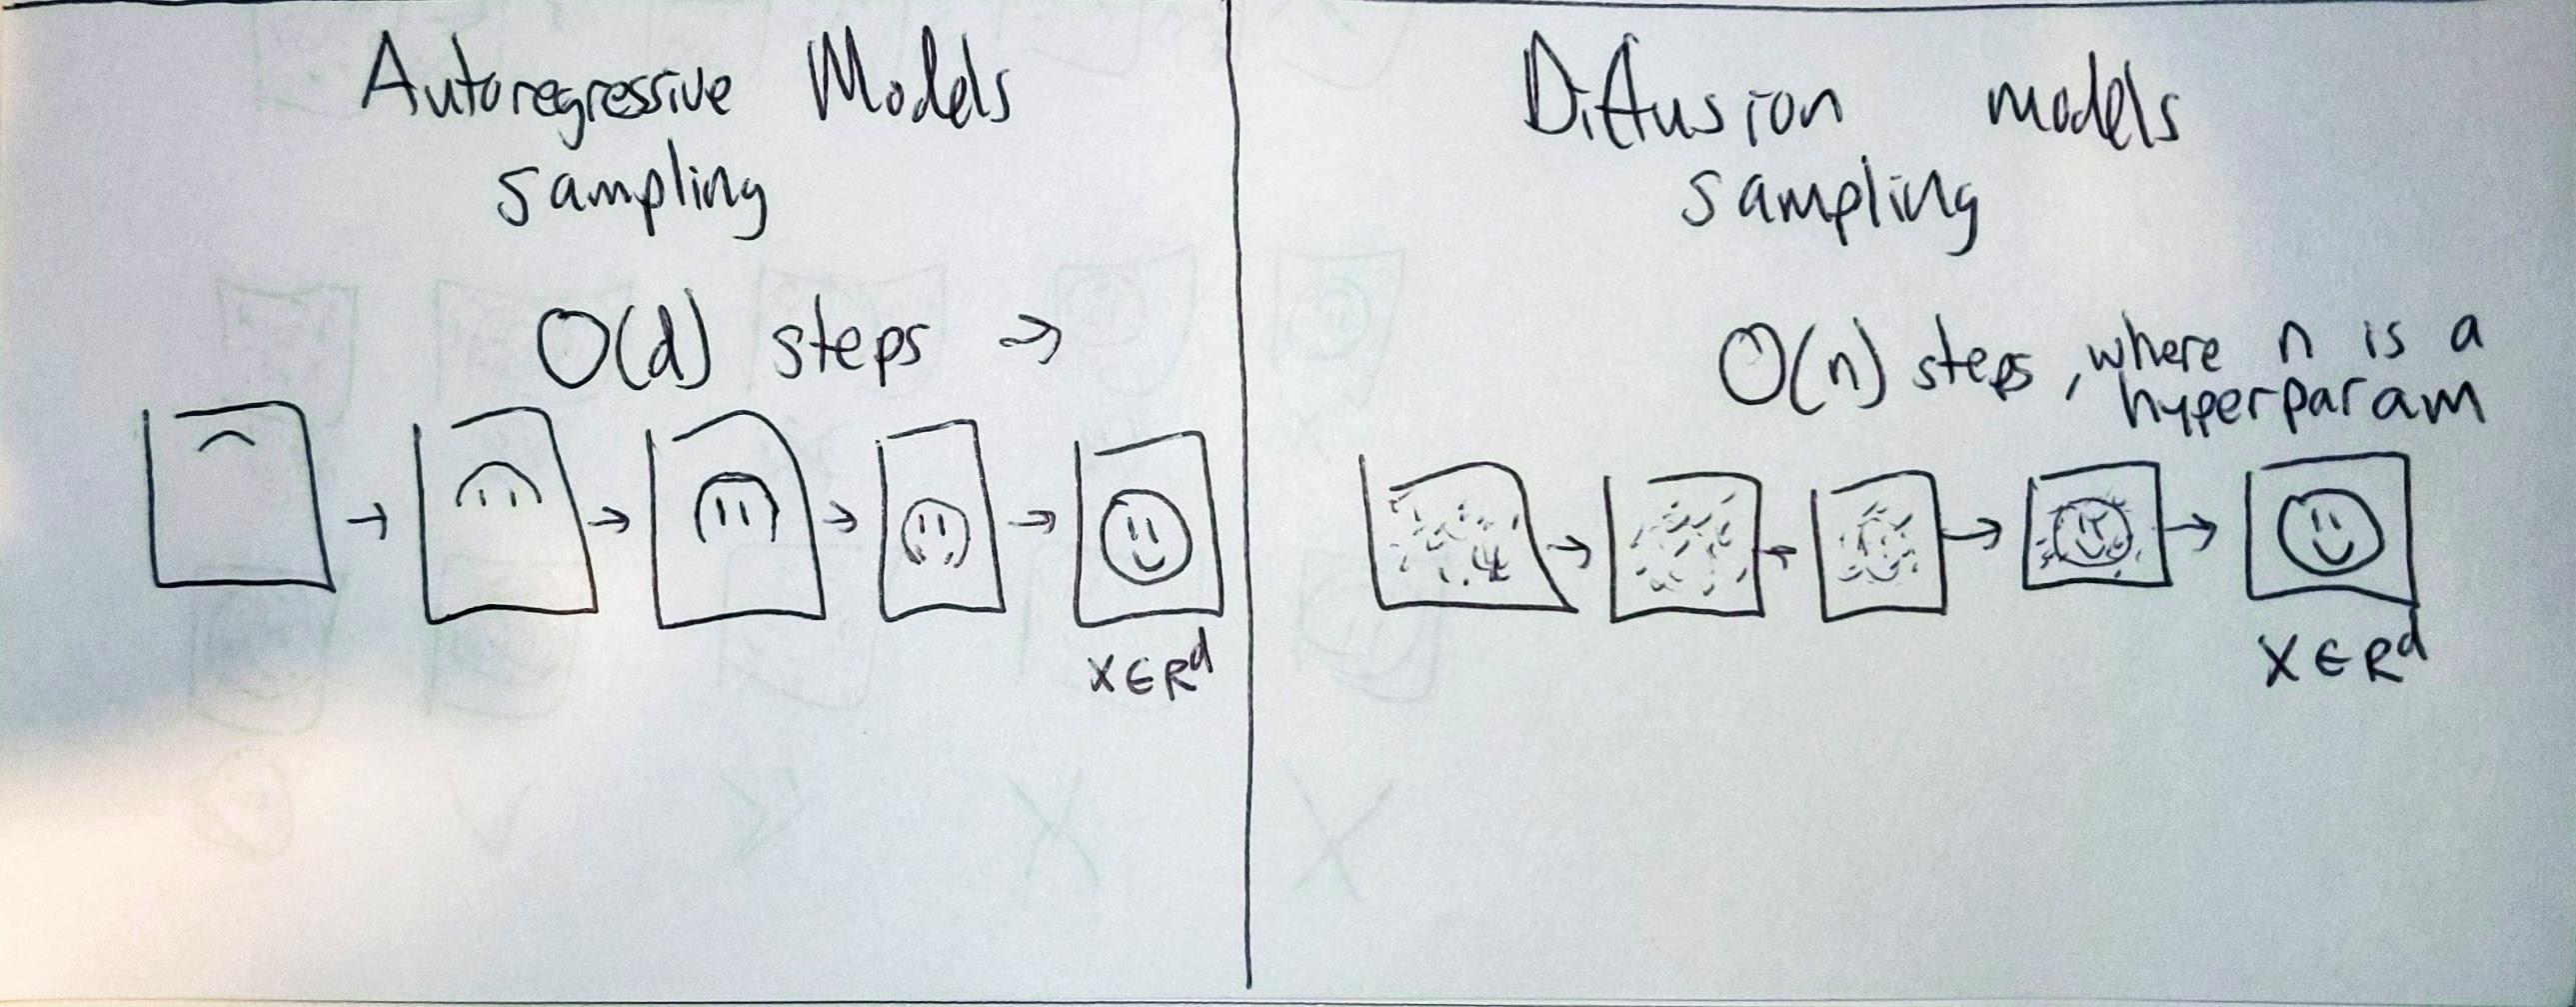 Autoregressive Models
sampling
O(d) steps →
X ∈ R^d
Diffusion models
sampling
O(n) steps, where n is a
hyperparam
X ∈ R^d